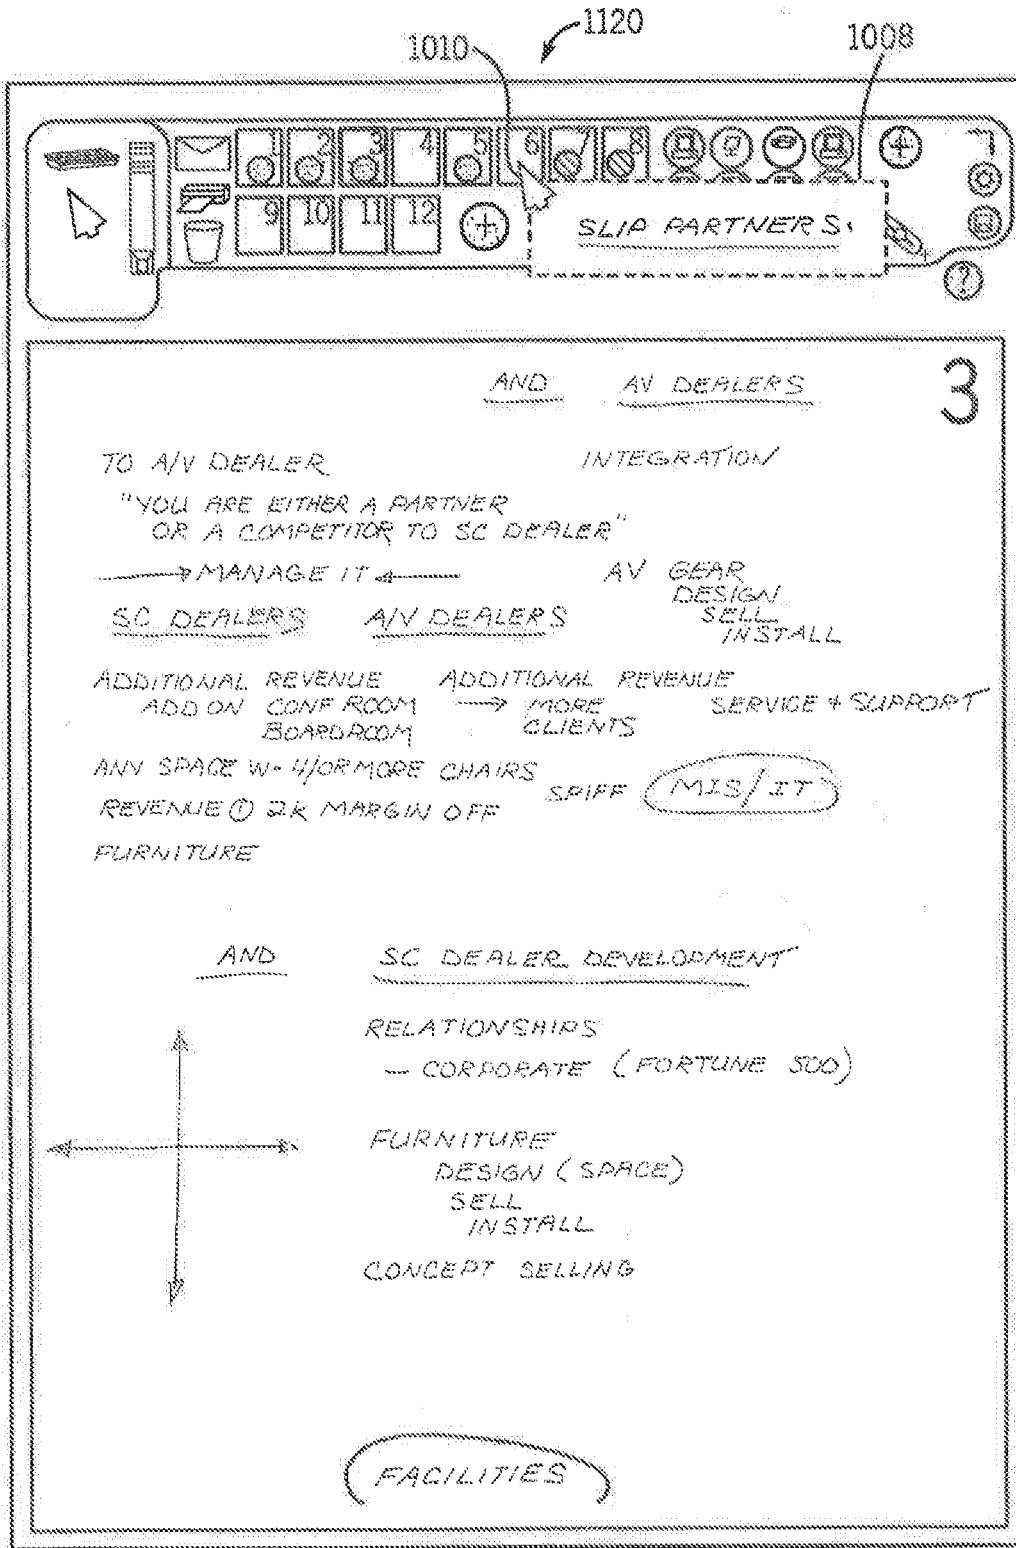 1120
1010
1008
1 2 3 4 5 6 7 8
9 10 11 12
SLIP PARTNERS.
?
3
AND AV DEALERS
TO A/V DEALER INTEGRATION
"YOU ARE EITHER A PARTNER
OR A COMPETITOR TO SC DEALER"
MANAGE IT AV GEAR
DESIGN
SC DEALERS A/V DEALERS SELL
INSTALL
ADDITIONAL REVENUE ADDITIONAL REVENUE
ADD ON CONF ROOM → MORE SERVICE + SUPPORT
BOARDROOM CLIENTS
ANY SPACE W- 4/OR MORE CHAIRS
SPIFF MIS/IT
REVENUE ① 2K MARGIN OFF
FURNITURE
AND SC DEALER DEVELOPMENT
RELATIONSHIPS
— CORPORATE (FORTUNE 500)
FURNITURE
DESIGN (SPACE)
SELL
INSTALL
CONCEPT SELLING
FACILITIES